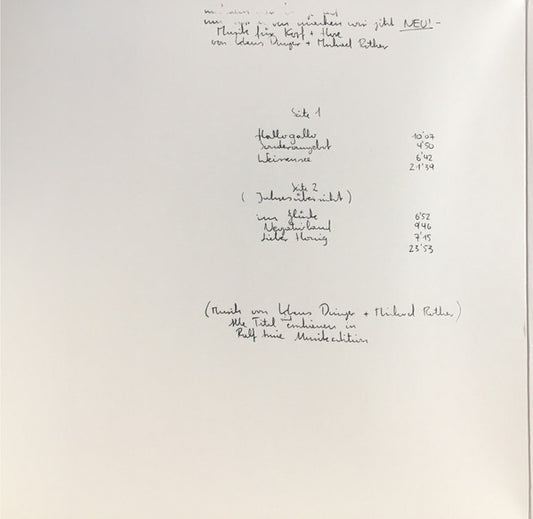 jetzt NEU! -
Musik für Kopf + Hose
von Klaus Dinger + Michael Rother
Seite 1
Hallogallo 10'07
Sonderangebot 4'50
Weissensee 6'42
21'39
Seite 2
(Jahresübersicht)
im Glück 6'52
Negativland 9'46
Lieber Honig 7'15
23'53
(Musik von Klaus Dinger + Michael Rother)
Alle Titel erschienen in
Ralf Musikedition